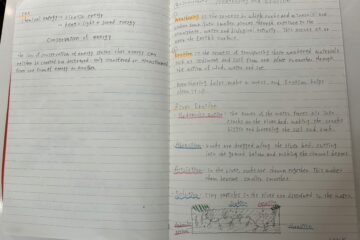 chemical energy → kinetic energy
→ heat + light + sound energy
Conservation of energy
The law of conservation of energy states that energy can
neither be created nor destroyed - only transferred or transformed
from one form of energy to another.
Weathering and erosion
Weathering is the process by which rocks and minerals are
broken down into smaller pieces through exposure to the
atmosphere, water and biological activity. This occurs at or
near the Earth's surface.
Erosion is the process of transporting these weathered materials
such as sediment and soil from one place to another through
the action of wind, water and ice.
Weathering helps make a mess, and Erosion helps
River Erosion
Hydraulic action - The power of the water forces air into
cracks on the river bed, making the cracks
bigger and loosening the soil and rock.
Abrasion - Rocks are dragged along the river bed, cutting
into the ground below and making the channel deeper.
Attrition - In the river, rocks are thrown together. This makes
them become smaller, smoother.
Solution - Tiny particles in the river are dissolved in the water.